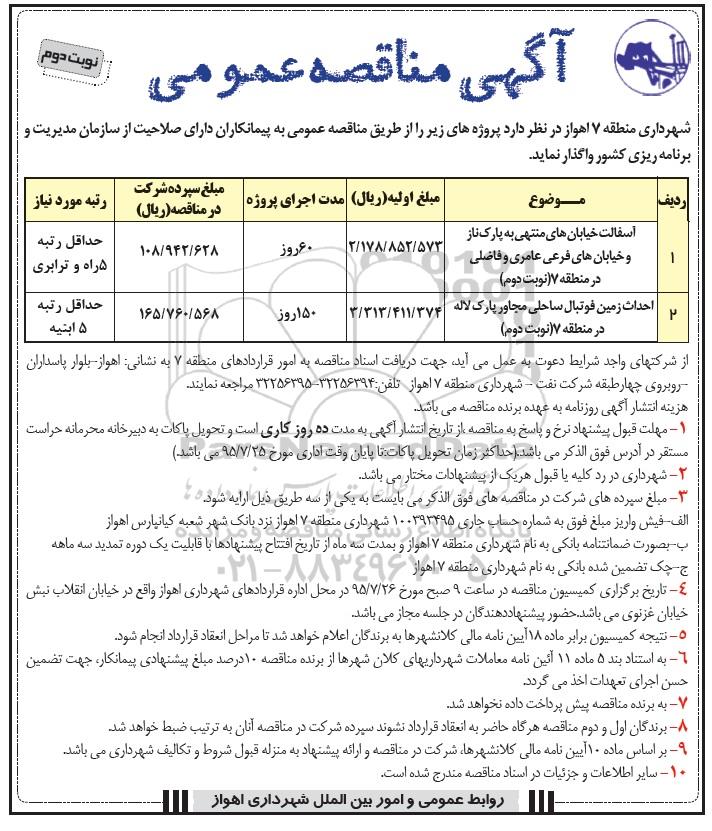 آگهی مناقصه عمومی
نوبت دوم
شهرداری منطقه ۷ اهواز در نظر دارد پروژه های زیر را از طریق مناقصه عمومی به پیمانکاران دارای صلاحیت از سازمان مدیریت و
برنامه ریزی کشور واگذار نماید.
ردیف مـــوضوع مبلغ اولیه(ریال) مدت اجرای پروژه مبلغ سپرده شرکت در مناقصه(ریال) رتبه مورد نیاز
۱ آسفالت خیابان های منتهی به پارک ناز
و خیابان های فرعی عامری و فاضلی
در منطقه ۷(نوبت دوم)
۲/۱۷۸/۸۵۲/۵۷۳ ۶۰روز ۱۰۸/۹۴۲/۶۲۸ حداقل رتبه
۵راه و ترابری
۲ احداث زمین فوتبال ساحلی مجاور پارک لاله
در منطقه ۷(نوبت دوم)
۳/۳۱۳/۴۱۱/۳۷۴ ۱۵۰روز ۱۶۵/۷۶۰/۵۶۸ حداقل رتبه
۵ ابنیه
از شرکتهای واجد شرایط دعوت به عمل می آید، جهت دریافت اسناد مناقصه به امور قراردادهای منطقه ۷ به نشانی: اهواز-بلوار پاسداران
-روبروی چهارطبقه شرکت نفت – شهرداری منطقه ۷ اهواز تلفن:۳۲۲۵۶۳۹۴-۳۲۲۵۶۳۹۵ مراجعه نمایند.
هزینه انتشار آگهی روزنامه به عهده برنده مناقصه می باشد.
۱- مهلت قبول پیشنهاد نرخ و پاسخ به مناقصه ،از تاریخ انتشار آگهی به مدت ده روز کاری است و تحویل پاکات به دبیرخانه محرمانه حراست
مستقر در آدرس فوق الذکر می باشد.(حداکثر زمان تحویل پاکات:تا پایان وقت اداری مورخ ۹۵/۷/۲۵ می باشد.)
۲- شهرداری در رد کلیه یا قبول هریک از پیشنهادات مختار می باشد.
۳- مبلغ سپرده های شرکت در مناقصه های فوق الذکر می بایست به یکی از سه طریق ذیل ارایه شود.
الف-فیش واریز مبلغ فوق به شماره حساب جاری ۱۰۰۳۹۳۴۹۵ شهرداری منطقه ۷ اهواز نزد بانک شهر شعبه کیانپارس اهواز
ب-بصورت ضمانتنامه بانکی به نام شهرداری منطقه ۷ اهواز و بمدت سه ماه از تاریخ افتتاح پیشنهادها با قابلیت یک دوره تمدید سه ماهه
ج-چک تضمین شده بانکی به نام شهرداری منطقه ۷ اهواز
۴- تاریخ برگزاری کمیسیون مناقصه در ساعت ۹ صبح مورخ ۹۵/۷/۲۶ در محل اداره قراردادهای شهرداری اهواز واقع در خیابان انقلاب نبش
خیابان غزنوی می باشد.حضور پیشنهاددهندگان در جلسه مجاز می باشد.
۵- نتیجه کمیسیون برابر ماده ۱۸آیین نامه مالی کلانشهرها به برندگان اعلام خواهد شد تا مراحل انعقاد قرارداد انجام شود.
۶- به استناد بند ۵ ماده ۱۱ آئین نامه معاملات شهرداریهای کلان شهرها از برنده مناقصه ۱۰درصد مبلغ پیشنهادی پیمانکار، جهت تضمین
حسن اجرای تعهدات اخذ می گردد.
۷- به برنده مناقصه پیش پرداخت داده نخواهد شد.
۸- برندگان اول و دوم مناقصه هرگاه حاضر به انعقاد قرارداد نشوند سپرده شرکت در مناقصه آنان به ترتیب ضبط خواهد شد.
۹- بر اساس ماده ۱۰آیین نامه مالی کلانشهرها، شرکت در مناقصه و ارائه پیشنهاد به منزله قبول شروط و تکالیف شهرداری می باشد.
۱۰- سایر اطلاعات و جزئیات در اسناد مناقصه مندرج شده است.
روابط عمومی و امور بین الملل شهرداری اهواز
ParsNamadData
۰۲۱-۸۸۳۴۹۶۷۰-۵